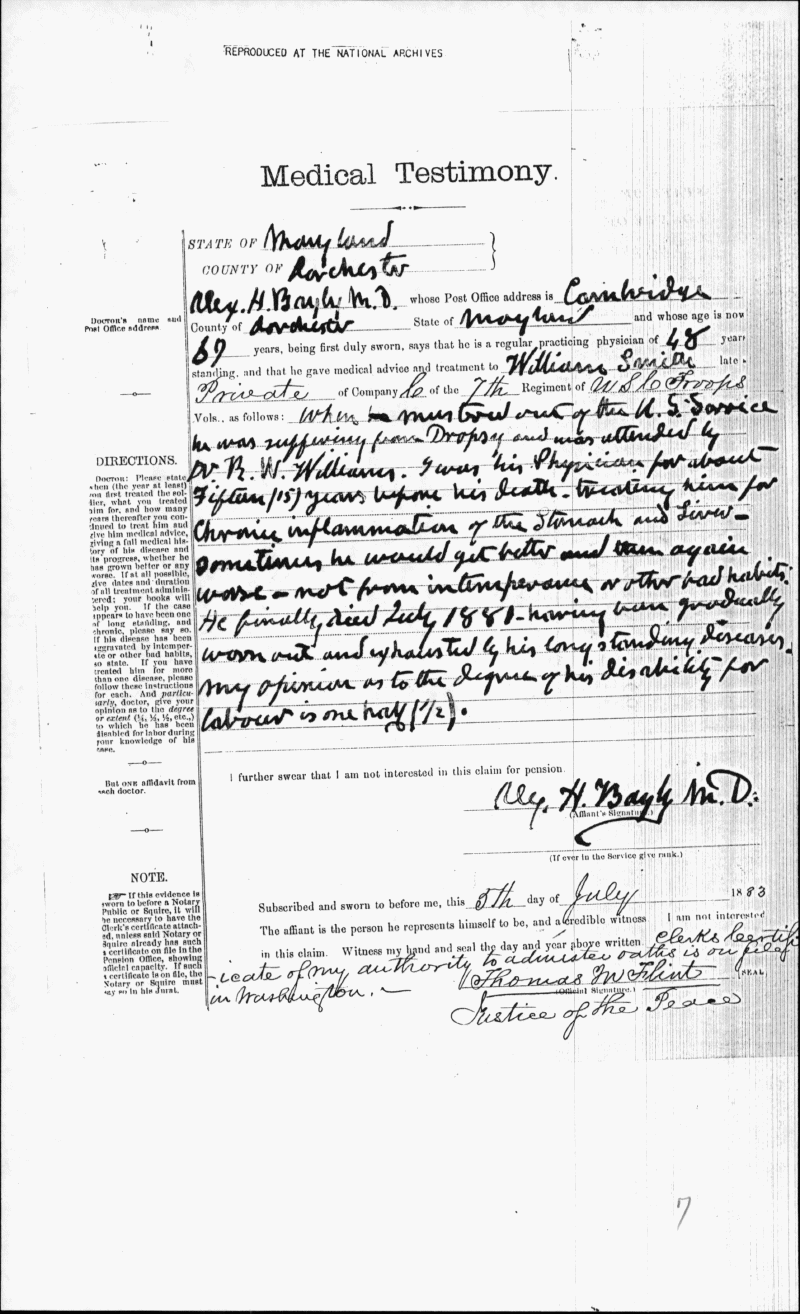 REPRODUCED AT THE NATIONAL ARCHIVES
Medical Testimony.
STATE OF Maryland
COUNTY OF Dorchester
Alex. H. Bayly M.D. whose Post Office address is Cambridge
County of Dorchester State of Maryland and whose age is now
69 years, being first duly sworn, says that he is a regular practicing physician of 48 years
standing, and that he gave medical advice and treatment to William Smith late
Private of Company C of the 7th Regiment of U S C Troops
Vols., as follows: When mustered out of the U. S. Service
he was suffering from Dropsy and was attended by
Dr R. W. Williams. I was his Physician for about
Fifteen (15) years before his death - treating him for
Chronic inflammation of the Stomach and Liver -
sometimes he would get better and then again
worse - not from intemperance or other bad habits.
He finally died July 1881 - having been gradually
worn out and exhausted by his long standing diseases.
My opinion as to the degree of his disability for
labour is one half (1/2).
I further swear that I am not interested in this claim for pension.
Alex. H. Bayly M.D.
(Affiant's Signature.)
(If ever in the Service give rank.)
Subscribed and sworn to before me, this 5th day of July 1883
The affiant is the person he represents himself to be, and a credible witness I am not interested
in this claim. Witness my hand and seal the day and year above written. Clerks Certif
-icate of my authority to administer oaths is on file
in Washington. -
Thomas W Flint [SEAL
(Official Signature.)
Justice of the Peace
Doctor's name and
Post Office address
DIRECTIONS.
Doctor: Please state
when (the year at least)
you first treated the sol-
dier, what you treated
him for, and how many
years thereafter you con-
tinued to treat him and
give him medical advice,
giving a full medical his-
tory of his disease and
its progress, whether he
has grown better or any
worse. If at all possible,
give dates and duration
of all treatment adminis-
tered; your books will
help you. If the case
appears to have been one
of long standing, and
chronic, please say so.
If his disease has been
aggravated by intemper-
ate or other bad habits,
so state. If you have
treated him for more
than one disease, please
follow these instructions
for each. And particu-
larly, doctor, give your
opinion as to the degree
or extent (¼, ⅓, ½, etc.,)
to which he has been
disabled for labor during
your knowledge of his
case.
But ONE affidavit from
each doctor.
NOTE.
If this evidence is
sworn to before a Notary
Public or Squire, it will
be necessary to have the
Clerk's certificate attach-
ed, unless said Notary or
Squire already has such
a certificate on file in the
Pension Office, showing
official capacity. If such
a certificate is on file, the
Notary or Squire must
say so in his jurat.
7